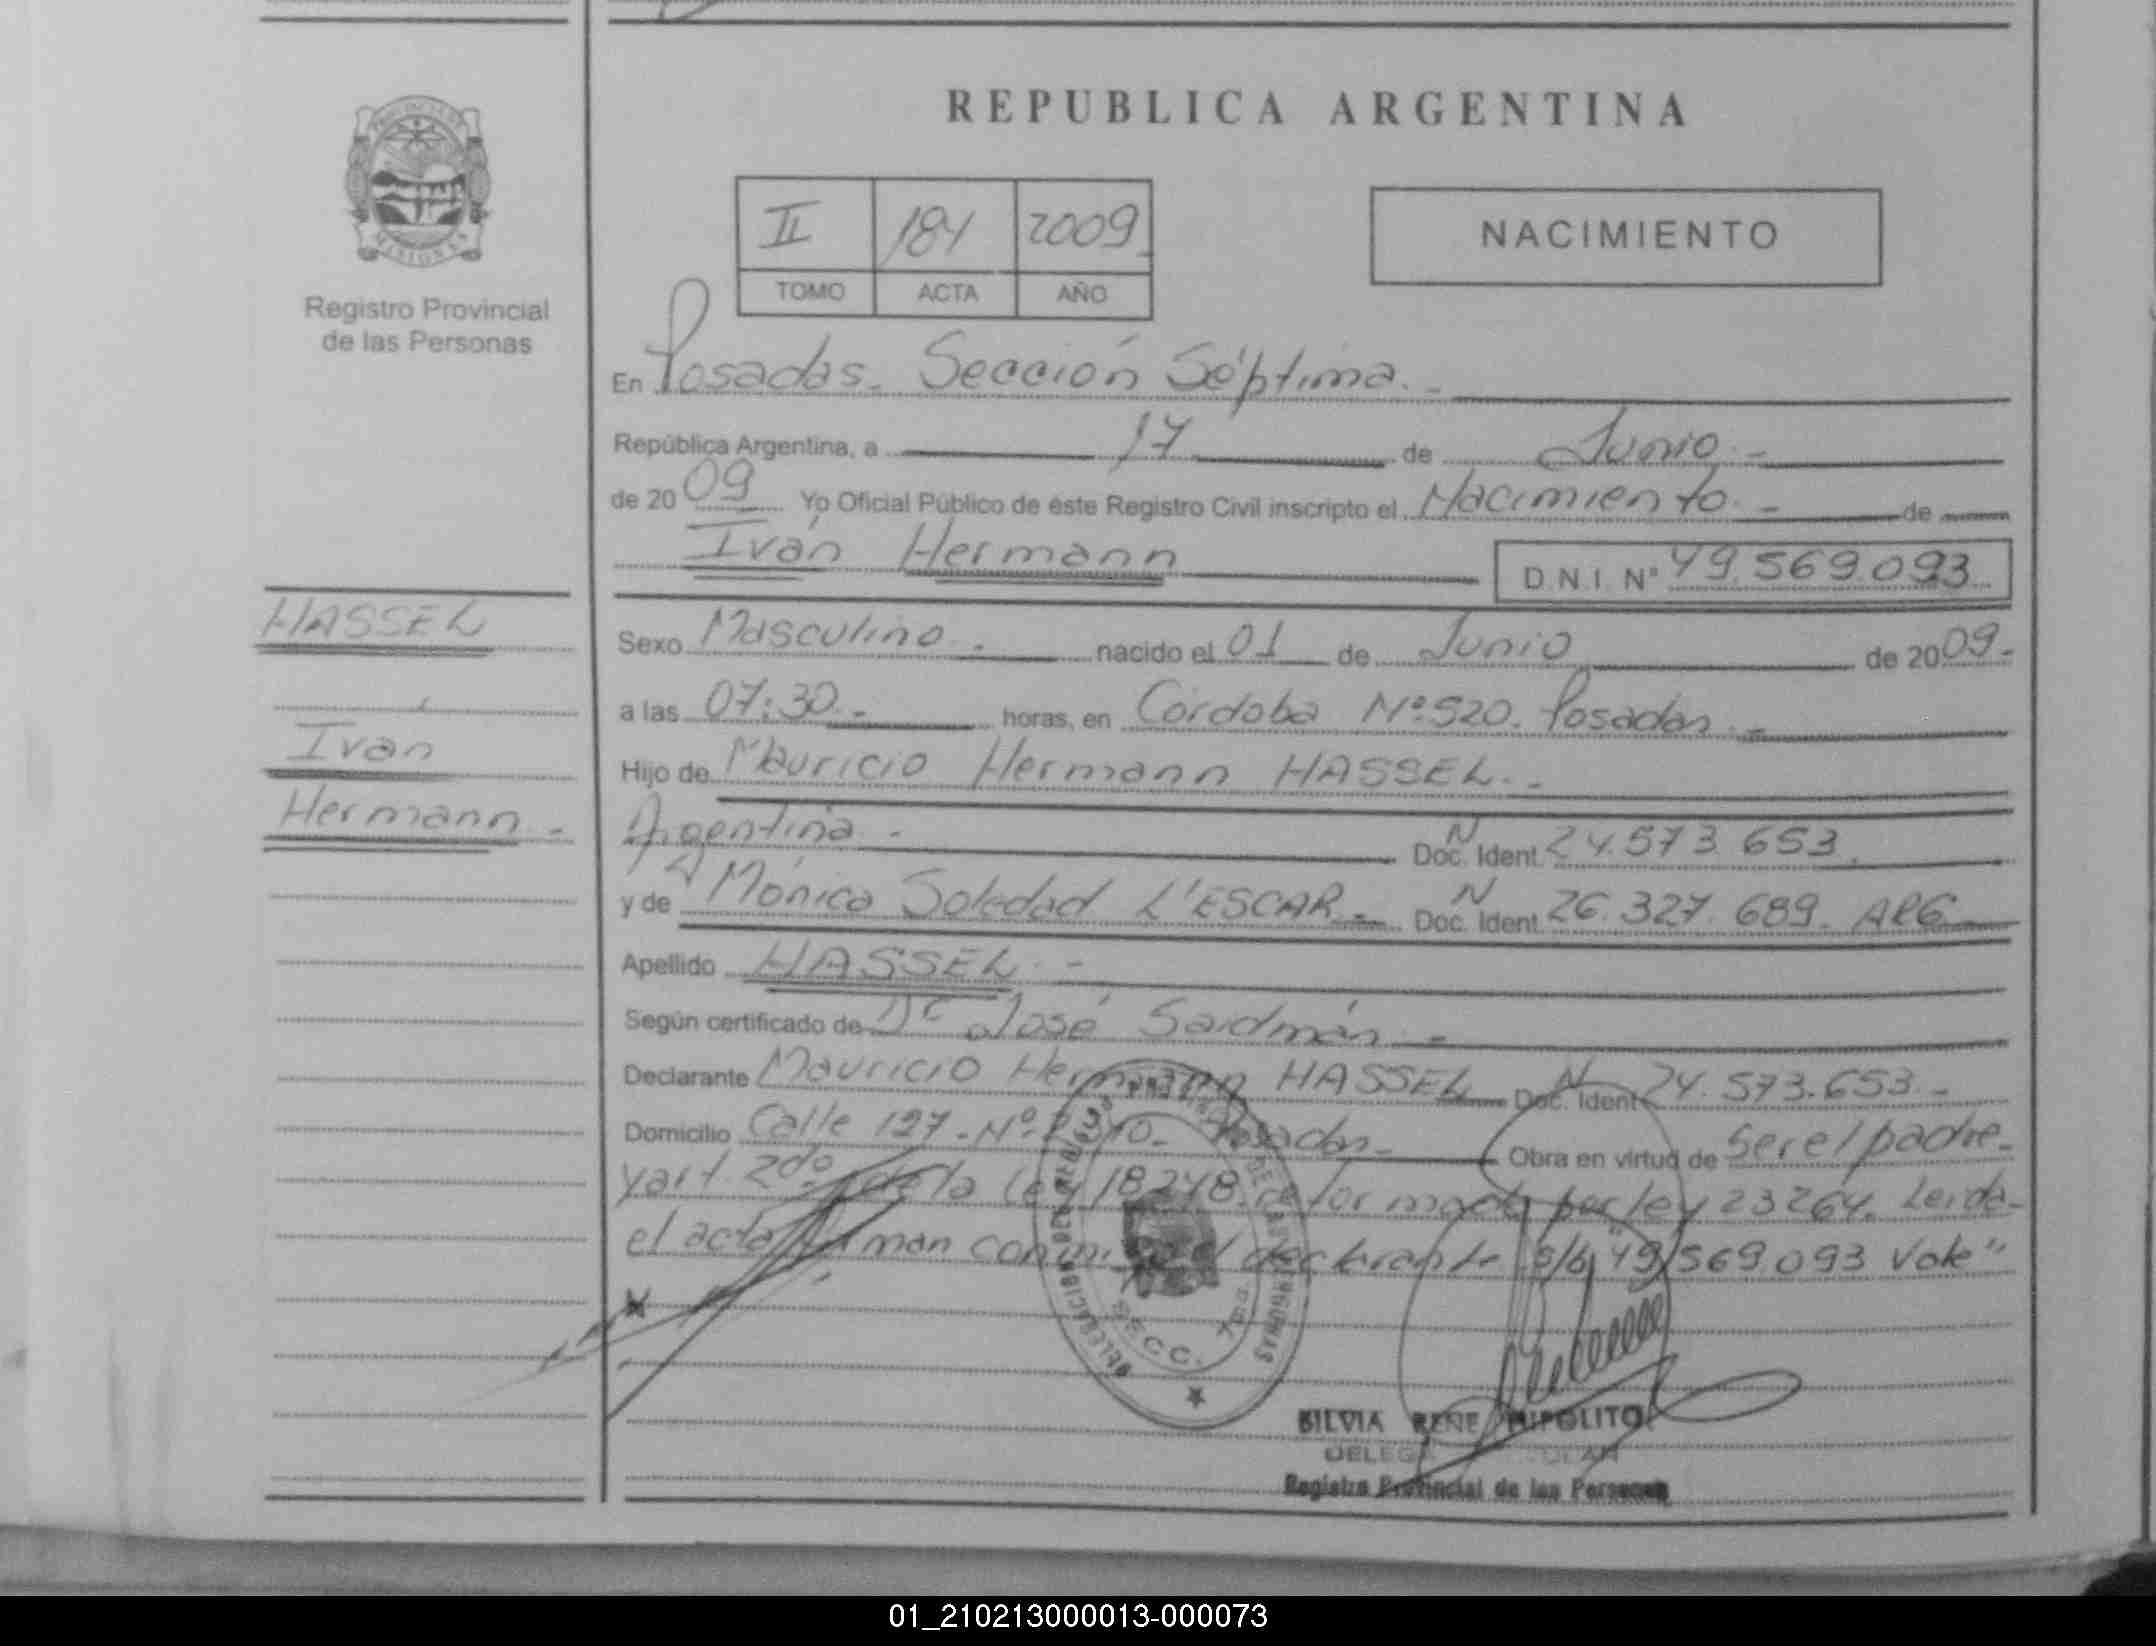 REPUBLICA ARGENTINA
II 184 2009
TOMO ACTA AÑO
NACIMIENTO
Registro Provincial
de las Personas
En Posadas. Sección Séptima.-
República Argentina, a 17 de Junio.-
de 2009 Yo Oficial Público de éste Registro Civil inscripto el Nacimiento.- de
Iván Hermann D.N.I. Nº 49.569.093
HASSEL
Iván
Hermann.-
Sexo Masculino.- nacido el 01 de Junio de 2009.-
a las 07:30.- horas, en Córdoba Nº 520. Posadas.-
Hijo de Mauricio Hermann HASSEL.-
Argentina.- Doc. Ident. N 24.573.653.
y de Mónica Soledad L'ESCAR.- Doc. Ident. N 26.327.689. ARG
Apellido HASSEL.-
Según certificado de Dr José Saidmán.-
Declarante Mauricio Hermann HASSEL Doc. Ident. N 24.573.653.-
Domicilio Calle 127.Nº Posadas.- Obra en virtud de ser el padre.
y art. 2do de la ley 18248. reformada por ley 23264. Leida
el acta firman conmigo el declarante s/b "49.569.093 Vale"
SECC. 7ma.
SILVIA RENE HIPOLITO
Registro Provincial de las Personas
01_210213000013-000073